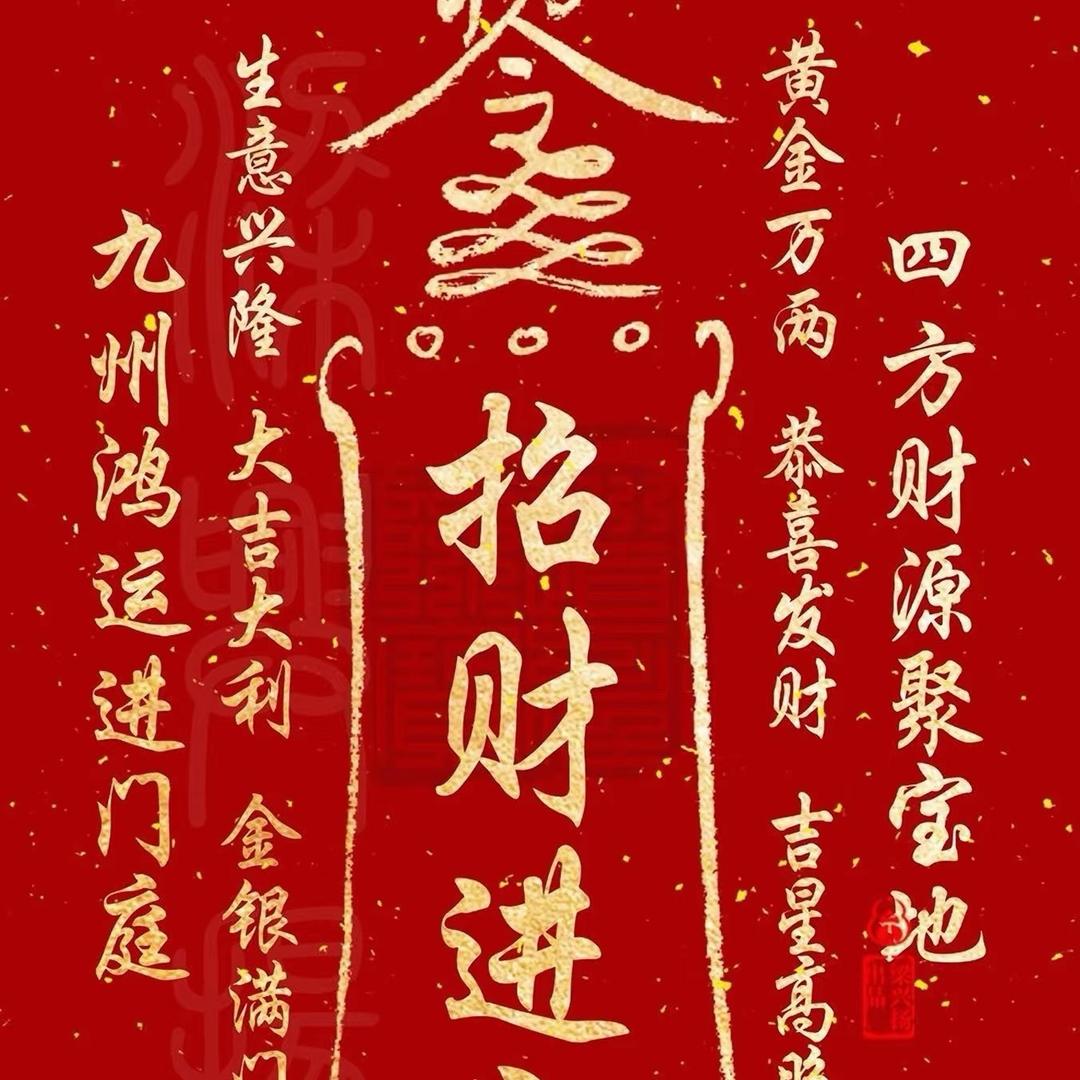 四方财源聚宝地
黄金万两 恭喜发财 吉星高照
招财进
生意兴隆 大吉大利 金银满门
九州鸿运进门庭